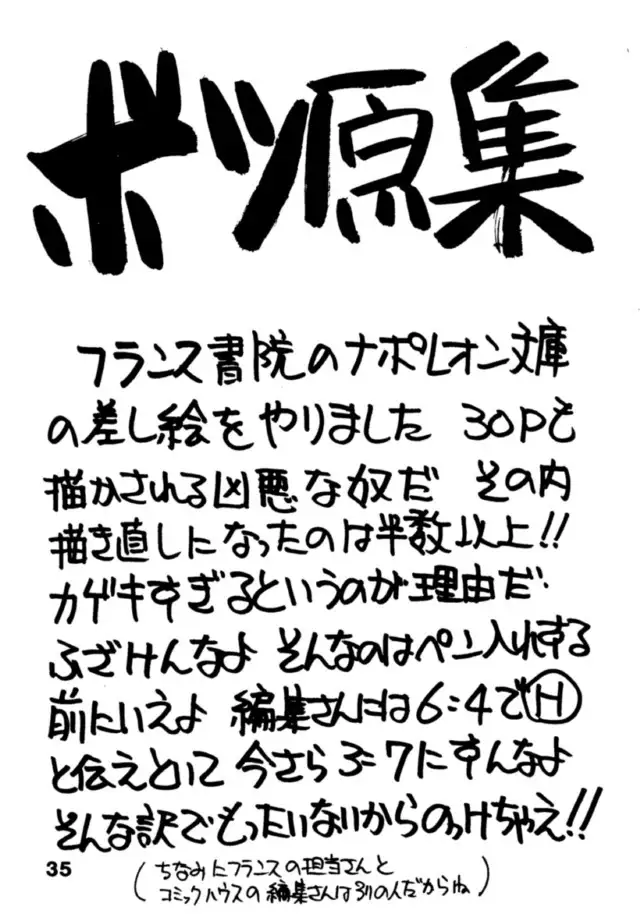 ボツ原集
フランス書院のナポレオン文庫
の差し絵をやりました 30Pも
描かされる凶悪な奴だ その内
描き直しになったのは半数以上!!
カゲキすぎるというのが理由だ
ふざけんなよ そんなのはペン入れする
前にいえよ 編集さんには6:4でⒽ
と伝えといて 今さら3:7にすんなよ
そんな訳でもったいないからのっけちゃえ!!
35
(ちなみにフランスの担当さんと
コミックハウスの編集さんは別の人だからね)